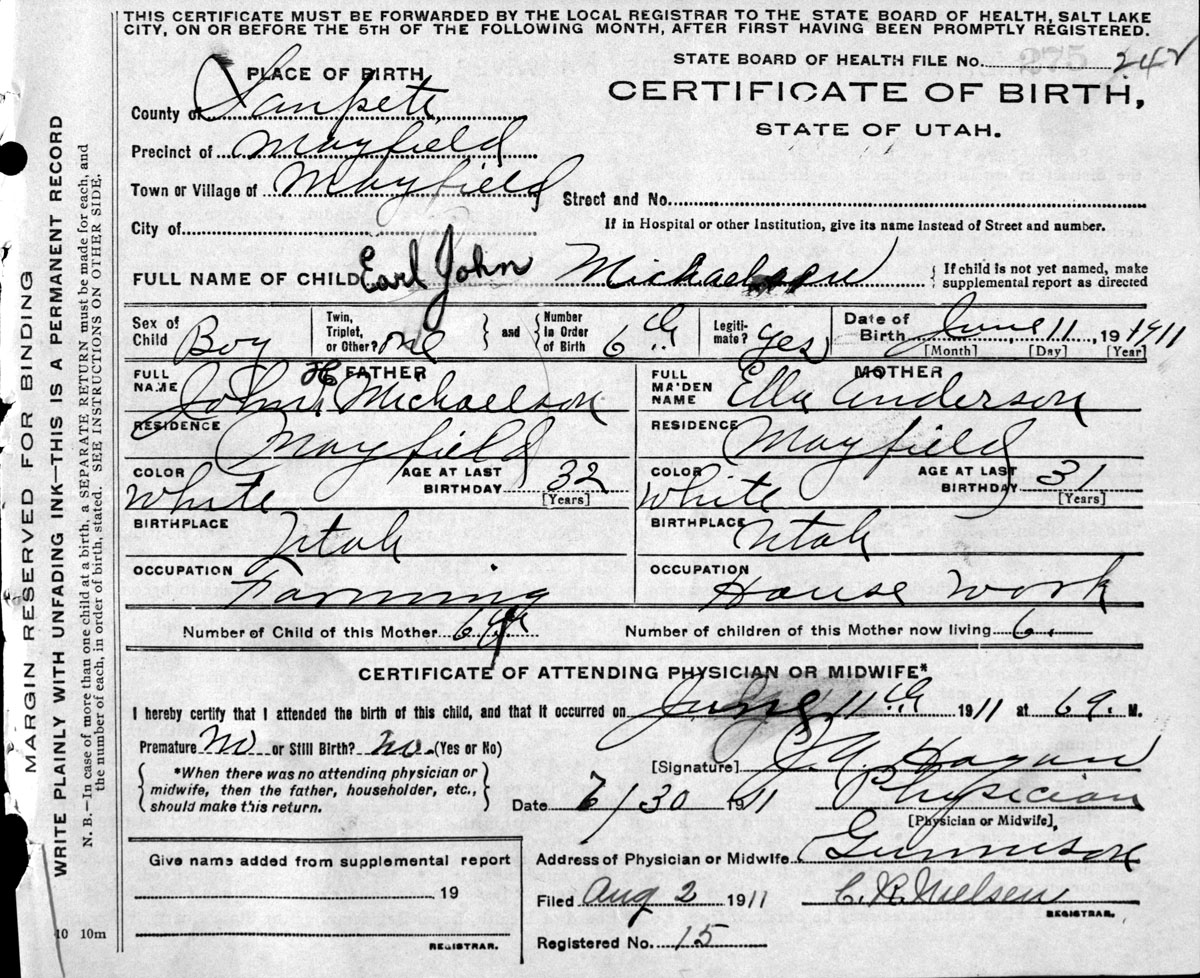 THIS CERTIFICATE MUST BE FORWARDED BY THE LOCAL REGISTRAR TO THE STATE BOARD OF HEALTH, SALT LAKE
CITY, ON OR BEFORE THE 5TH OF THE FOLLOWING MONTH, AFTER FIRST HAVING BEEN PROMPTLY REGISTERED.
STATE BOARD OF HEALTH FILE No. 275 242
PLACE OF BIRTH
CERTIFICATE OF BIRTH,
STATE OF UTAH.
County of Sanpete
Precinct of Mayfield
Town or Village of Mayfield
Street and No.
City of
If in Hospital or other Institution, give its name Instead of Street and number.
FULL NAME OF CHILD Earl John Michaelson { If child is not yet named, make supplemental report as directed
Sex of Child Boy
Twin, Triplet, or Other? one } and { Number In Order of Birth 6th
Legiti-mate? Yes
Date of Birth June 11, 19 1911
[Month] [Day] [Year]
FATHER
FULL NAME John H Michaelson
RESIDENCE Mayfield
COLOR White
AGE AT LAST BIRTHDAY 32 [Years]
BIRTHPLACE Utah
OCCUPATION Farming
MOTHER
FULL MAIDEN NAME Ella Anderson
RESIDENCE Mayfield
COLOR White
AGE AT LAST BIRTHDAY 31 [Years]
BIRTHPLACE Utah
OCCUPATION House work
Number of Child of this Mother 6th
Number of children of this Mother now living 6.
CERTIFICATE OF ATTENDING PHYSICIAN OR MIDWIFE*
I hereby certify that I attended the birth of this child, and that it occurred on June 11th 1911 at 6 a. M.
Premature No or Still Birth? No. (Yes or No)
*When there was no attending physician or
midwife, then the father, householder, etc.,
should make this return.
[Signature] Hagan
Date 6/30 1911 Physician
[Physician or Midwife]
Address of Physician or Midwife Gunnison
Give name added from supplemental report
19
REGISTRAR.
Filed Aug 2 1911 C. R. Nielsen
REGISTRAR.
Registered No. 15
10 10m
MARGIN RESERVED FOR BINDING
WRITE PLAINLY WITH UNFADING INK—THIS IS A PERMANENT RECORD
N. B.—In case of more than one child at a birth, a SEPARATE RETURN must be made for each, and
the number of each, in order of birth, stated. SEE INSTRUCTIONS ON OTHER SIDE.